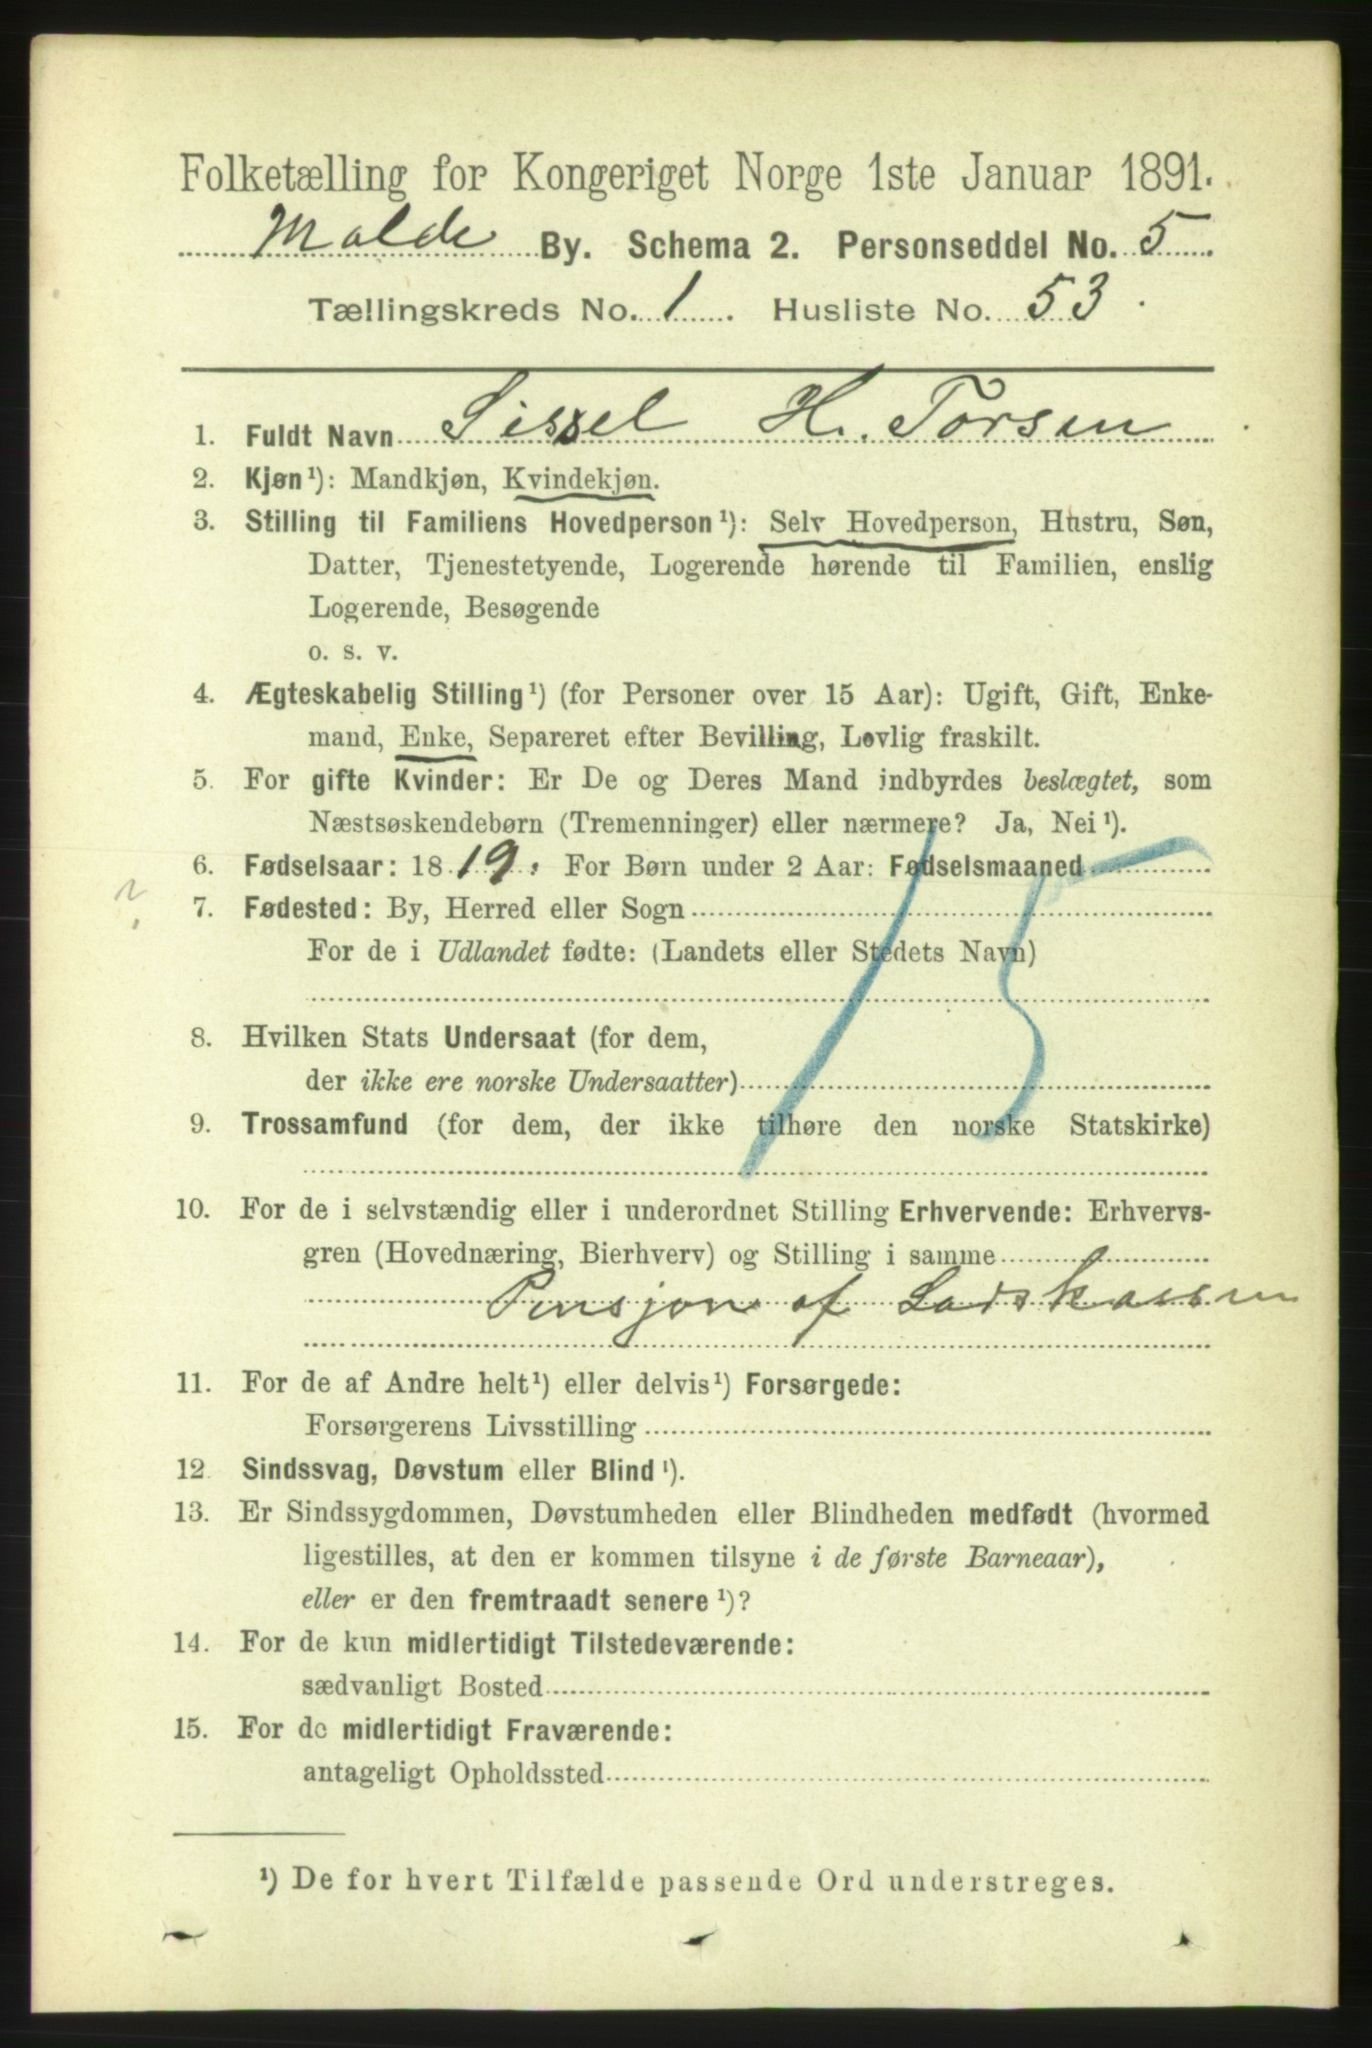 Folketælling for Kongeriget Norge 1ste Januar 1891.
Molde By. Schema 2. Personseddel No. 5
Tællingskreds No. 1. Husliste No. 53.
1. Fuldt Navn Sissel H. Torsen
2. Kjøn¹): Mandkjøn, Kvindekjøn.
3. Stilling til Familiens Hovedperson¹): Selv Hovedperson, Hustru, Søn,
Datter, Tjenestetyende, Logerende hørende til Familien, enslig
Logerende, Besøgende
o. s. v.
4. Ægteskabelig Stilling¹) (for Personer over 15 Aar): Ugift, Gift, Enke-
mand, Enke, Separeret efter Bevilling, Lovlig fraskilt.
5. For gifte Kvinder: Er De og Deres Mand indbyrdes beslægtet, som
Næstsøskendebørn (Tremenninger) eller nærmere? Ja, Nei¹).
6. Fødselsaar: 1819. For Børn under 2 Aar: Fødselsmaaned
?
7. Fødested: By, Herred eller Sogn
15
For de i Udlandet fødte: (Landets eller Stedets Navn)
8. Hvilken Stats Undersaat (for dem,
der ikke ere norske Undersaatter)
9. Trossamfund (for dem, der ikke tilhøre den norske Statskirke)
10. For de i selvstændig eller i underordnet Stilling Erhvervende: Erhvervs-
gren (Hovednæring, Bierhverv) og Stilling i samme
Pensjon af
11. For de af Andre helt¹) eller delvis¹) Forsørgede:
Forsørgerens Livsstilling
12. Sindssvag, Døvstum eller Blind¹).
13. Er Sindssygdommen, Døvstumheden eller Blindheden medfødt (hvormed
ligestilles, at den er kommen tilsyne i de første Barneaar),
eller er den fremtraadt senere¹)?
14. For de kun midlertidigt Tilstedeværende:
sædvanligt Bosted
15. For de midlertidigt Fraværende:
antageligt Opholdssted
¹) De for hvert Tilfælde passende Ord understreges.